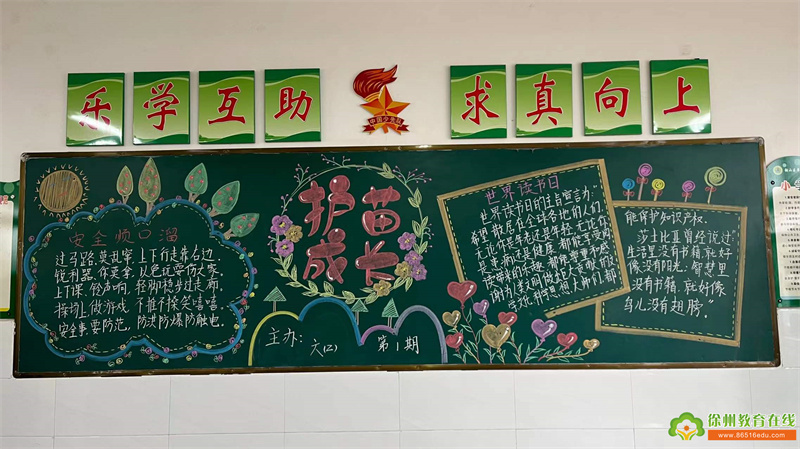 乐学互助
求真向上
中国少先队
护苗
成长
安全顺口溜
过马路,莫乱窜,上下行走靠右边,
锐利器,你莫拿,以免玩耍伤大家,
上下课,铃声响,轻脚稳步过走廊,
操场上做游戏,不推不挨笑嘻嘻,
安全事要防范,防洪防爆防触电.
主办:六(2) 第1期
世界读书日
世界读书日的主旨宣言为:"
希望散居在全球各地的人们,
无论你是年老还是年轻,无论你
是患病还是健康,都能享受
读带来的乐趣,都能尊重和感
谢为人类文明做出巨大贡献的文
学
能保护知识产权.
莎士比亚曾经说过"
生活里没有书籍,就好
像没有阳光,智慧里
没有书籍,就好像
鸟儿没有翅膀."
徐州教育在线
www.86516edu.com